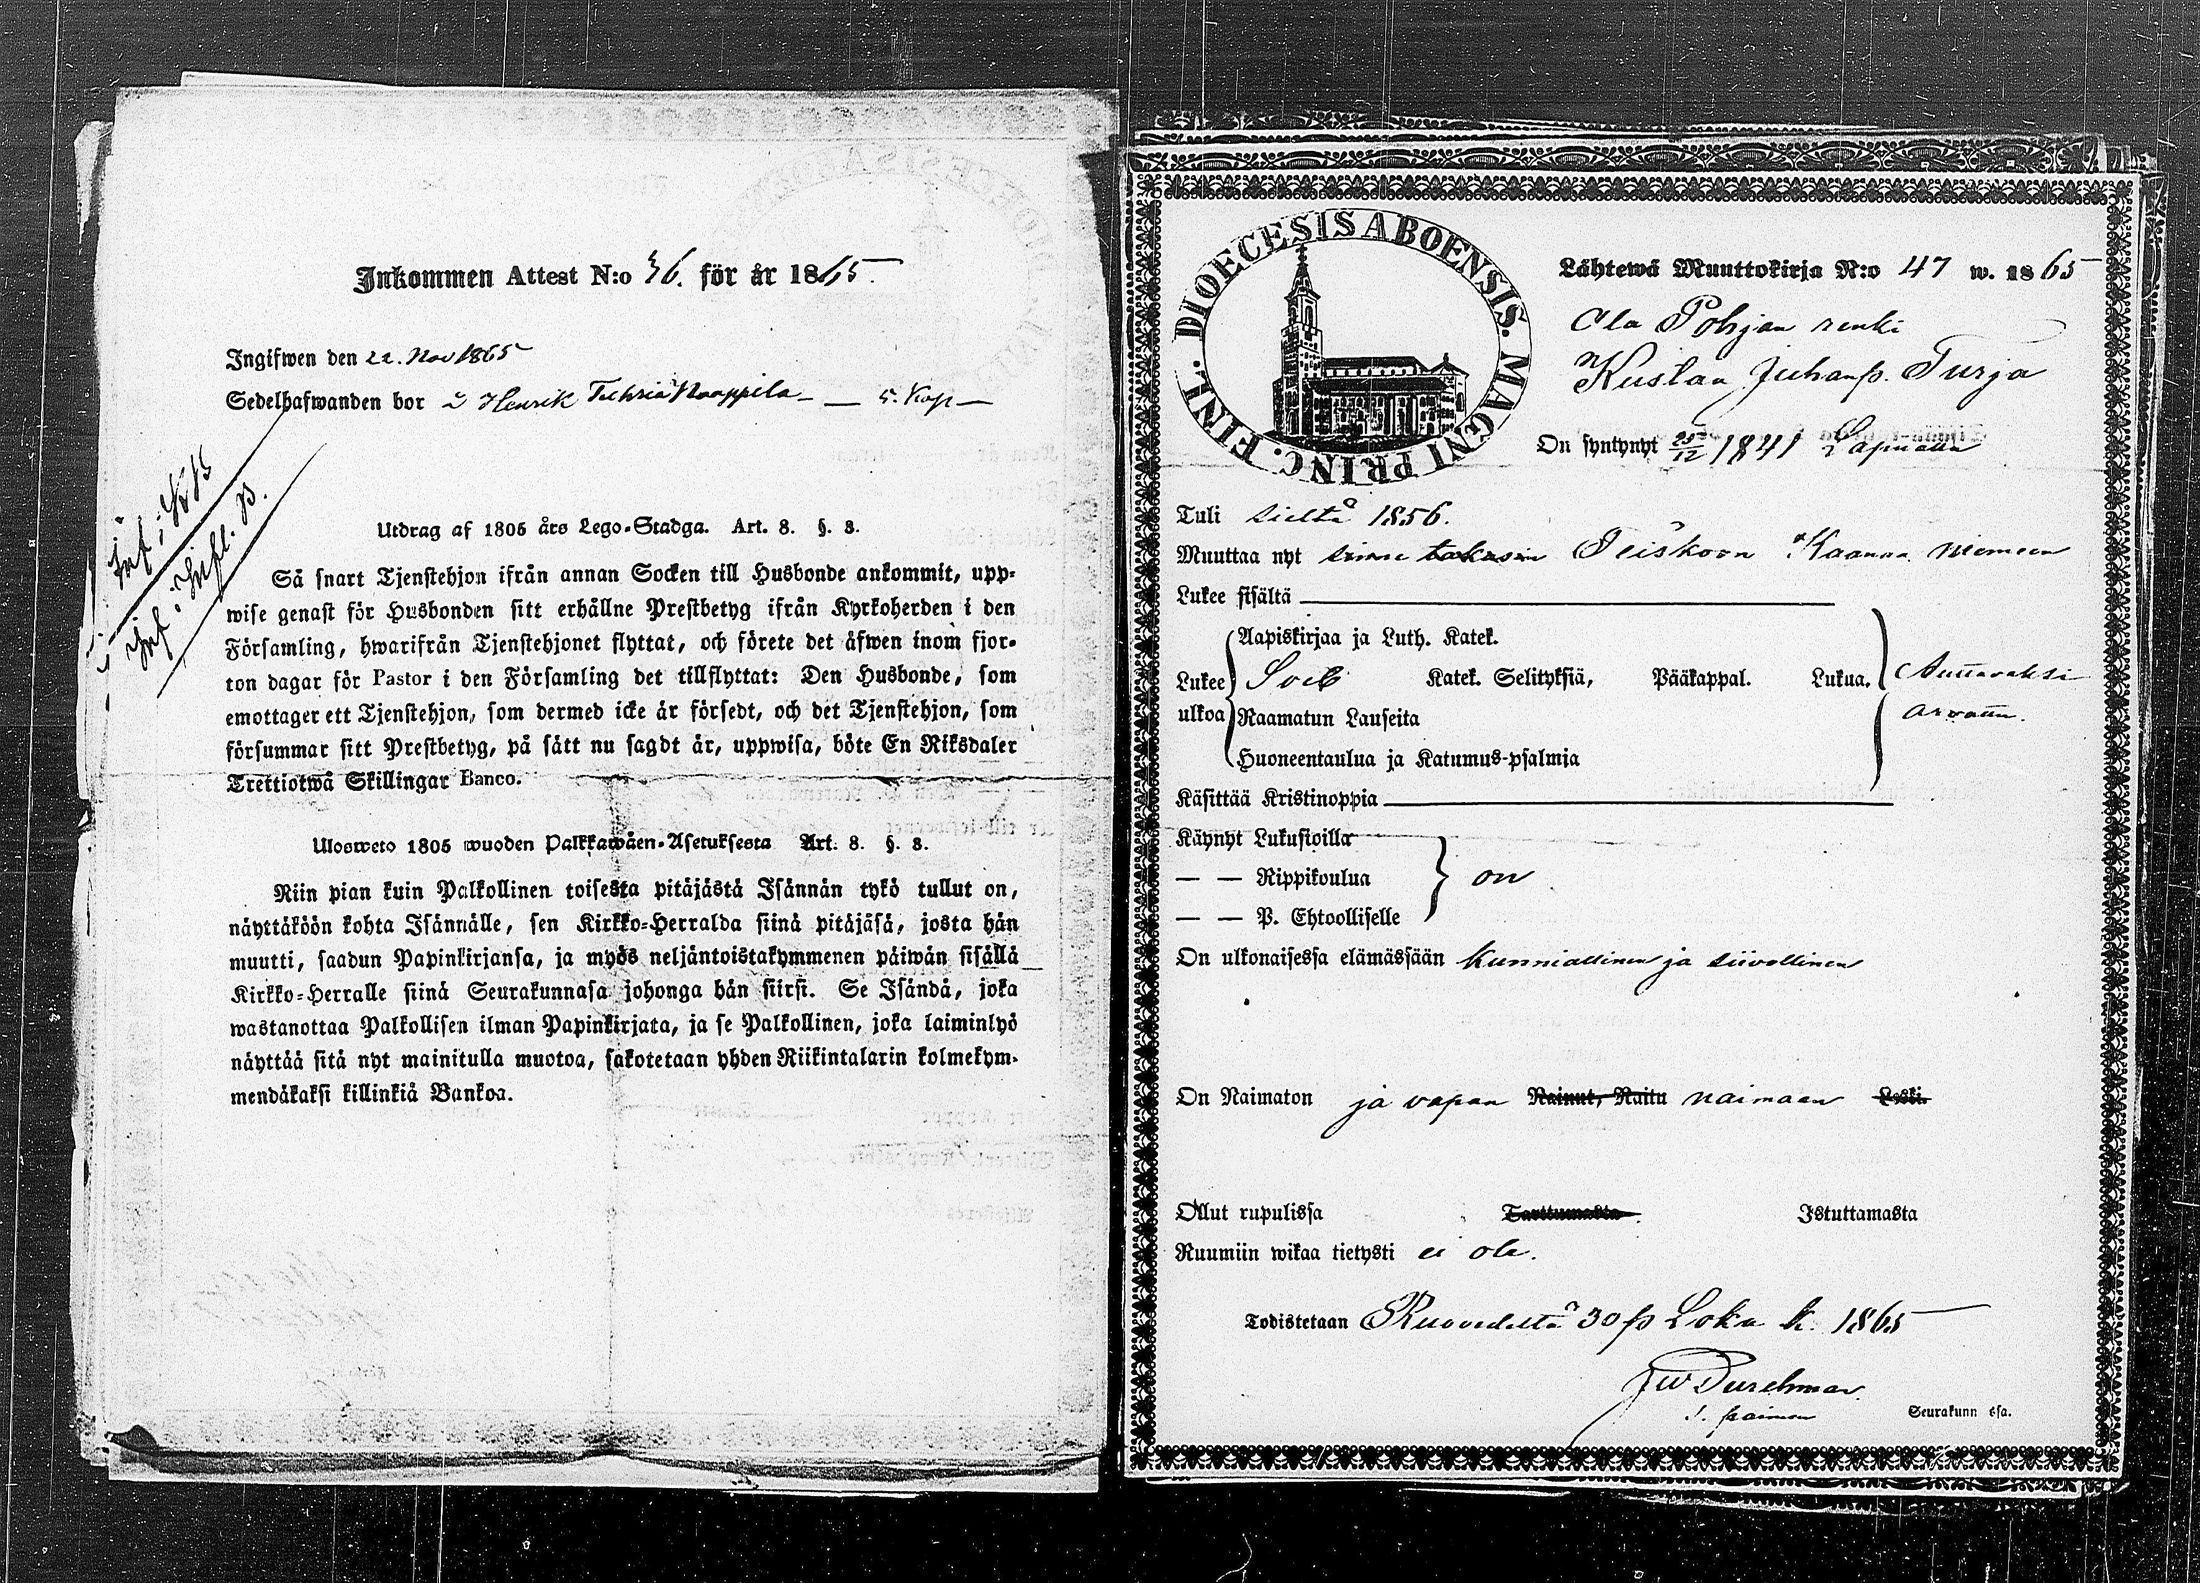 Inkommen Attest N:o 36. för år 1865.
Ingifwen den 22. Nov 1865
Sedelhafwanden bor Henrik Naappila — 5. Kop —
Inf: Infl. B.
Utdrag af 1805 års Lego-Stadga. Art. 8. §. 8.
Så snart Tjenstehjon ifrån annan Socken till Husbonde ankommit, upp-
wise genast för Husbonden sitt erhållne Prestbetyg ifrån Kyrkoherden i den
Församling, hwarifrån Tjenstehjonet flyttat, och förete det äfwen inom fjor-
ton dagar för Pastor i den Församling det tillflyttat: Den Husbonde, som
emottager ett Tjenstehjon, som dermed icke är försedt, och det Tjenstehjon, som
försummar sitt Prestbetyg, på sätt nu sagdt är, uppwisa, böte En Riksdaler
Trettiotwå Skillingar Banco.
Ulosweto 1805 wuoden Palkkawäen-Asetuksesta Art. 8. §. 8.
Niin pian kuin Palkollinen toisesta pitäjästä Isännän tykö tullut on,
näyttäköön kohta Isännälle, sen Kirkko-Herralda siinä pitäjäsä, josta hän
muutti, saadun Papinkirjansa, ja myös neljäntoistakymmenen päiwän sisällä
Kirkko-Herralle siinä Seurakunnasa johonga hän siirsi. Se Isändä, joka
wastanottaa Palkollisen ilman Papinkirjata, ja se Palkollinen, joka laiminlyö
näyttää sitä nyt mainitulla muotoa, sakotetaan yhden Riikintalarin kolmekym-
mendäkaksi killinkiä Bankoa.
DIOECESIS ABOENSIS. MAGNI PRINC. FINL.
Lähtewä Muuttokirja N:o 47 w. 1865
Ala Pohjan renki
Kustaa Juhanp. Turja
On syntynyt 25/12 1841 Lapualla
Tuli sieltä 1856.
Muuttaa nyt sinne takasin Teiskoon Kaanaa niemeen
Lukee sisältä
Aapiskirjaa ja Luth. Katek.
Lukee ulkoa Katek. Selityksiä, Pääkappal. Lukua. Auttavaksi
Raamatun Lauseita arvattu.
Huoneentaulua ja Katumus-psalmia
Käsittää Kristinoppia
Käynyt Lukusioilla
— — Rippikoulua on
— — P. Ehtoolliselle
On ulkonaisessa elämässään kunniallinen ja siivollinen
On Naimaton ja vapaa Nainut, Naitu naimaan Leski.
Ollut rupulissa Tarttumasta Istuttamasta
Ruumiin wikaa tietysti ei ole.
Todistetaan Ruovedeltä 30 p Loka k. 1865
JW Durchman
Seurakunn ssa.